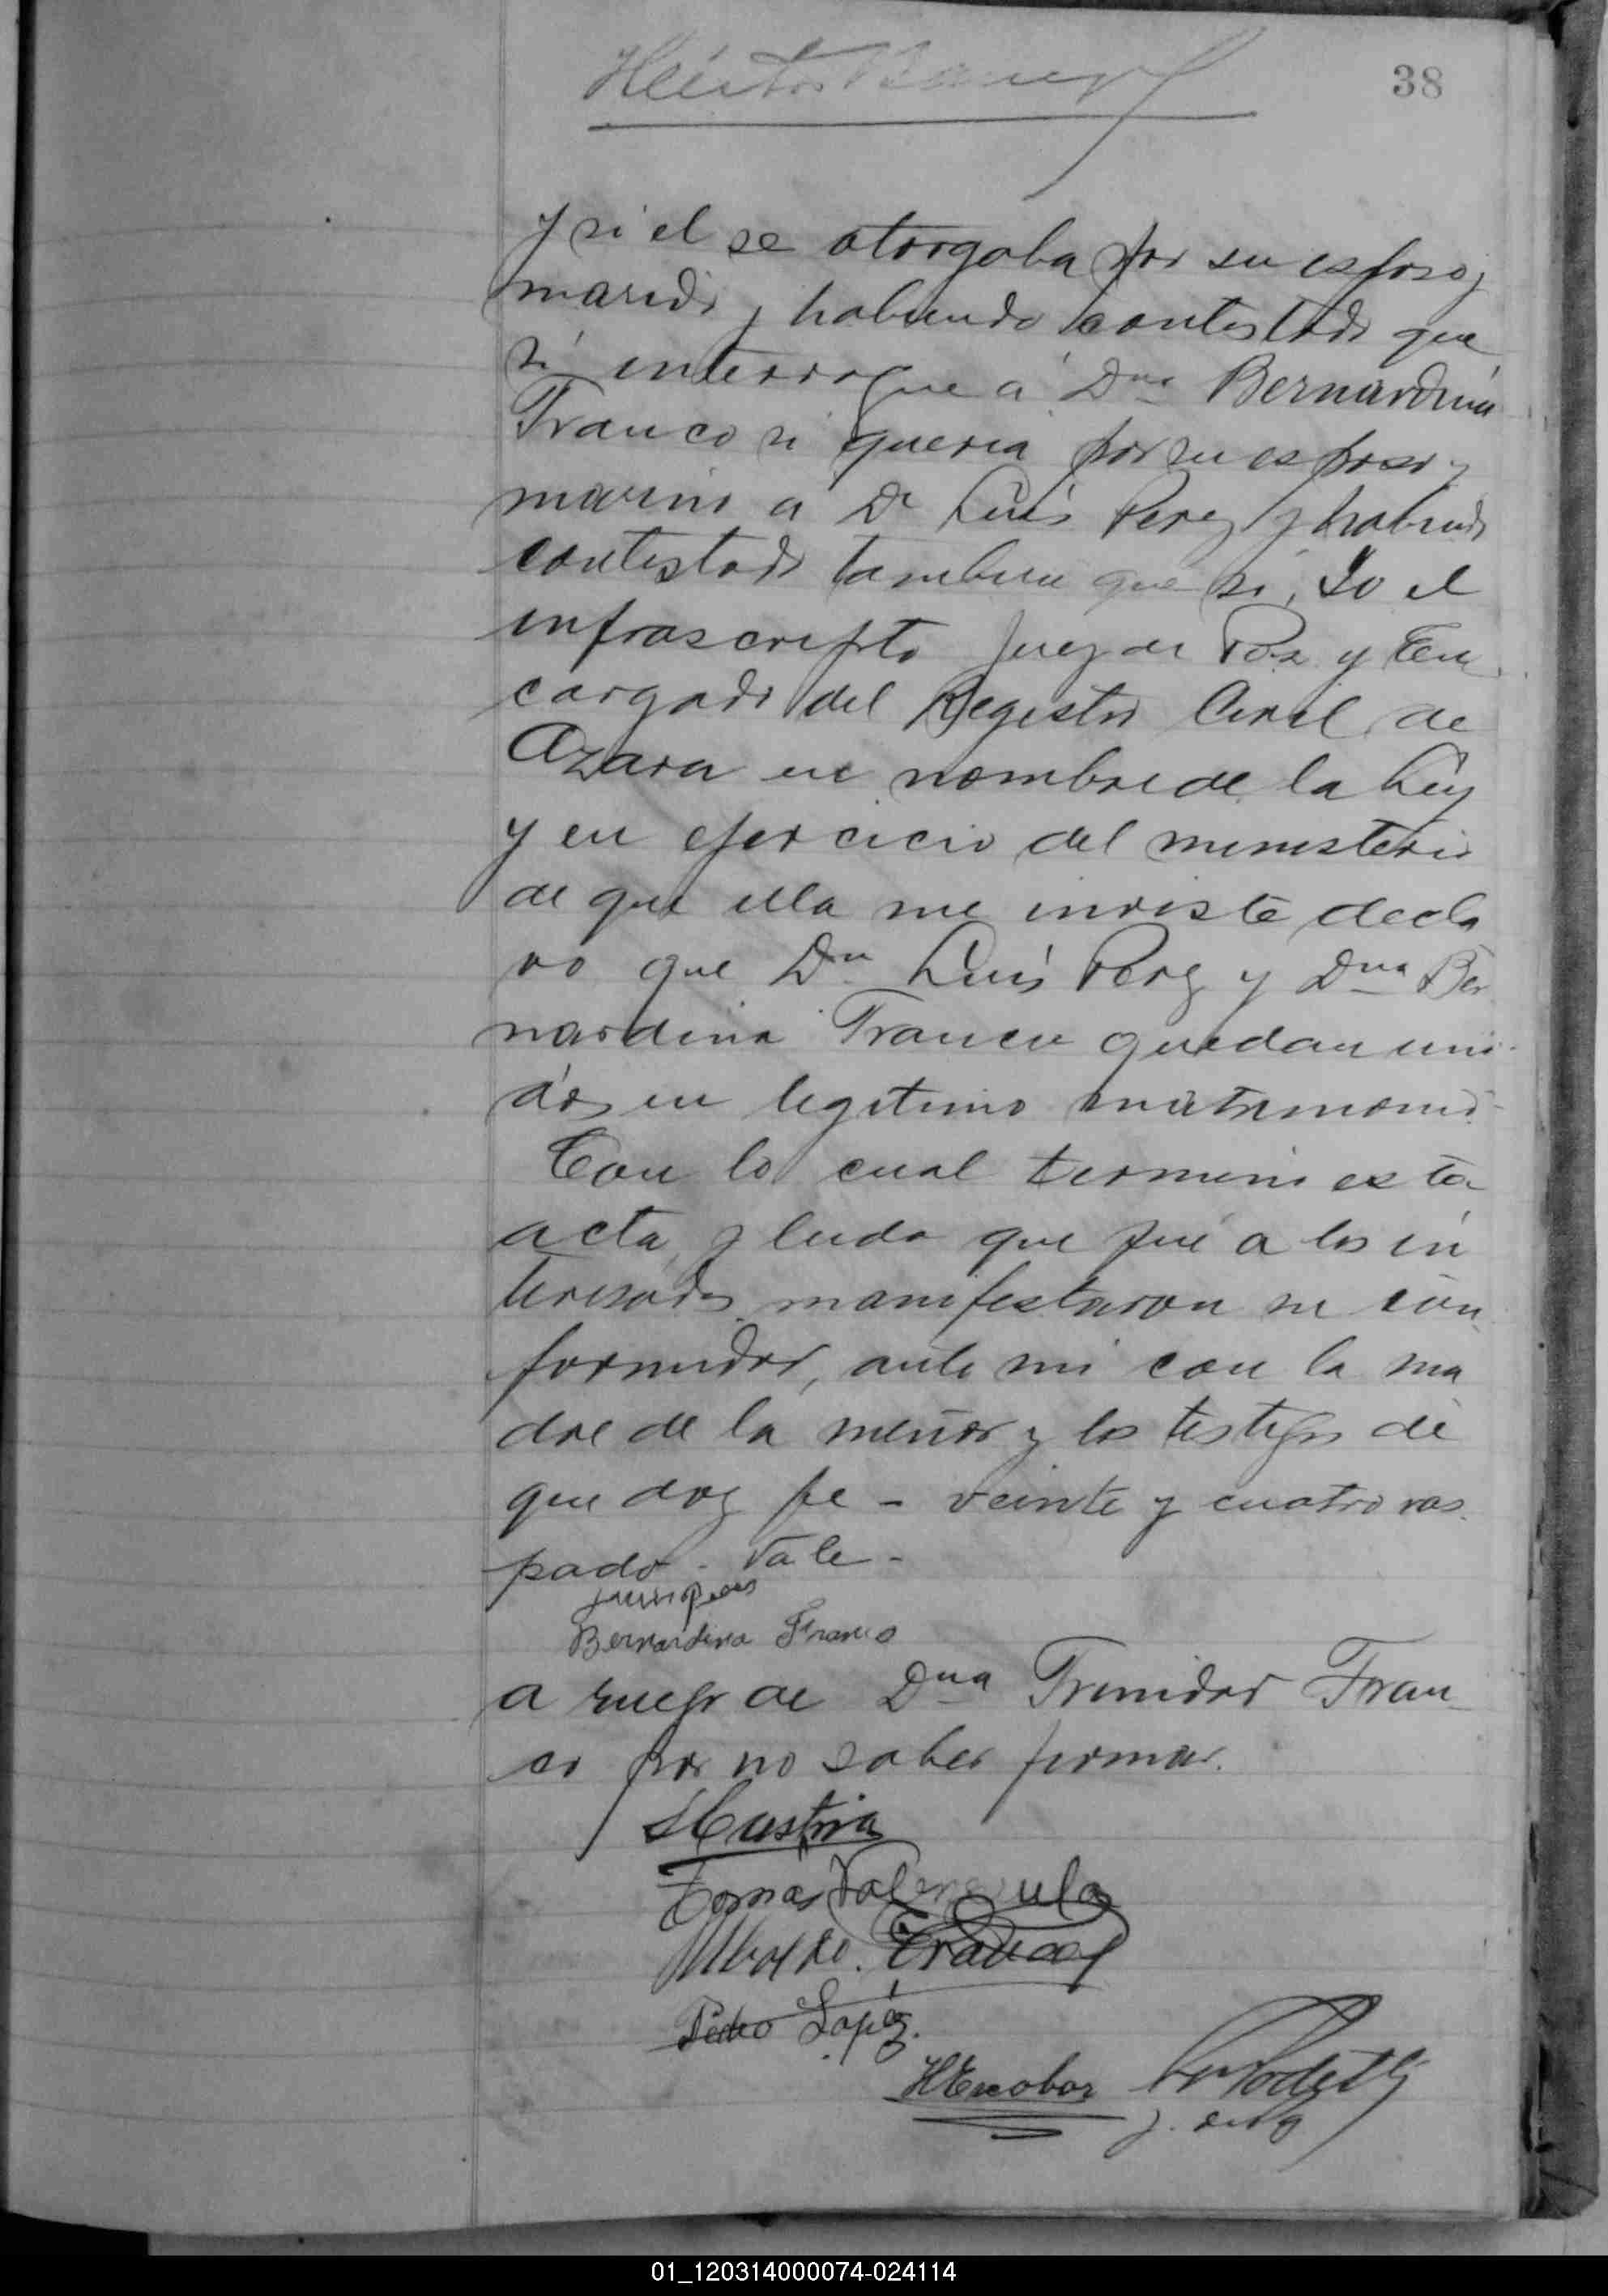 38
y si el se otorgaba por su esposo y
marido y habiendo contestado que
si interrogue a Dna Bernardina
Franco si queria por su esposo y
marido a Dn Luis Perez y habiendo
contestado tambien que si, Yo el
infrascripto Juez de Paz y En
cargado del Registro Civil de
Azara en nombre de la Ley
y en ejercicio del ministerio
de que ella me inviste decla
ro que Dn Luis Perez y Dna Ber
nardina Franco quedan uni-
dos en legitimo matrimonio-
Con lo cual termino esta
acta, y leida que fué a los in
teresados manifestaron su con
formidad, ante mi con la ma
dre de la menor y los testigos de
que doy fe - veinte y cuatro ras
pado - Vale -
Bernardina Franco
a ruego de Dna Trinidad Fran
co por no saber firmar.
Tomas Valenzuela
Ubaldo Franco
Pedro Lopéz.
HEscobar
J. de Paz
01_120314000074-024114